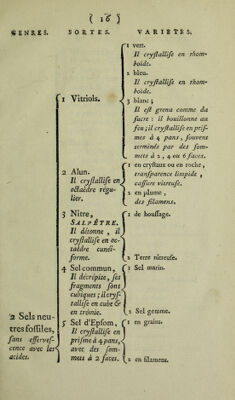 ( 16 )
GENRES. SORTES. VARIETÉS.
1 vert.
Il crystallise en rhom-
boïde.
2 bleu.
Il crystallise en rhom-
boïde.
1 Vitriols.
3 blanc ;
Il est grenu comme du
sucre : il bouillonne au
feu ; il crystallise en pris-
mes à 4 pans, souvent
terminés par des som-
mets à 2, 4 ou 6 faces.
2 Alun.
Il crystallise en
octaëdre régu-
lier.
1 en crystaux ou en roche,
transparence limpide,
cassure vitreuse.
2 en plume,
des filamens.
3 Nitre,
SALPÊTRE.
Il détonne, il
crystallise en oc-
taëdre cunéi-
forme.
1 de houssage.
2 Terre nitreuse.
4 Sel commun,
Il décrépite, ses
fragments sont
cubiques ; il crys-
tallise en cube &
en trémie.
1 Sel marin.
2 Sel gemme.
2 Sels neu-
tres fossiles,
sans efferves-
cence avec les
acides.
5 Sel d'Epsom,
Il crystallise en
prisme à 4 pans,
avec des som-
mets à 2 faces.
1 en grains.
2 en filamens.